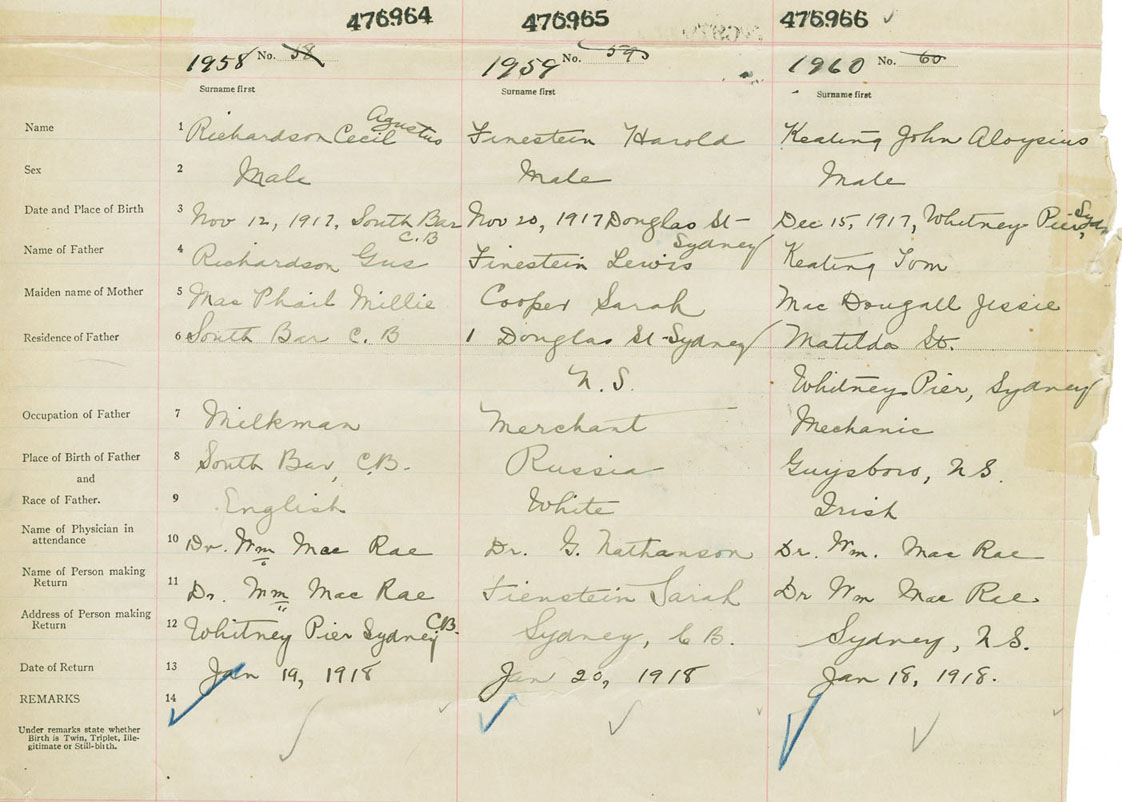 476964 476965 476966
1958 No. 58 1959 No. 59 1960 No. 60
Surname first Surname first Surname first
Agustus
Name 1 Richardson Cecil Finestein Harold Keating John Aloysius
Sex 2 Male Male Male
Date and Place of Birth 3 Nov 12, 1917, South Bar Nov 20, 1917 Douglas St- Dec 15, 1917, Whitney Pier,
C.B Sydney
Name of Father 4 Richardson Gus Finestein Lewis Keating Tom
Maiden name of Mother 5 Mac Phail Millie Cooper Sarah Mac Dougall Jessie
Residence of Father 6 South Bar C. B 1 Douglas St-Sydney Matilda St.
N.S. Whitney Pier, Sydney
Occupation of Father 7 Milkman Merchant Mechanic
Place of Birth of Father 8 South Bar, C.B. Russia Guysboro, N.S.
and
Race of Father. 9 English White Irish
Name of Physician in
attendance 10 Dr. Wm Mac Rae Dr. G. Nathanson Dr. Wm. Mac Rae
Name of Person making
Return 11 Dr. Wm Mac Rae Fienstein Sarah Dr Wm Mac Rae.
Address of Person making
Return 12 Whitney Pier Sydney C.B. Sydney, C B. Sydney, N.S.
Date of Return 13 Jan 19, 1918 Jan 20, 1918 Jan 18, 1918.
REMARKS 14
Under remarks state whether
Birth is Twin, Triplet, Ille-
gitimate or Still-bith.